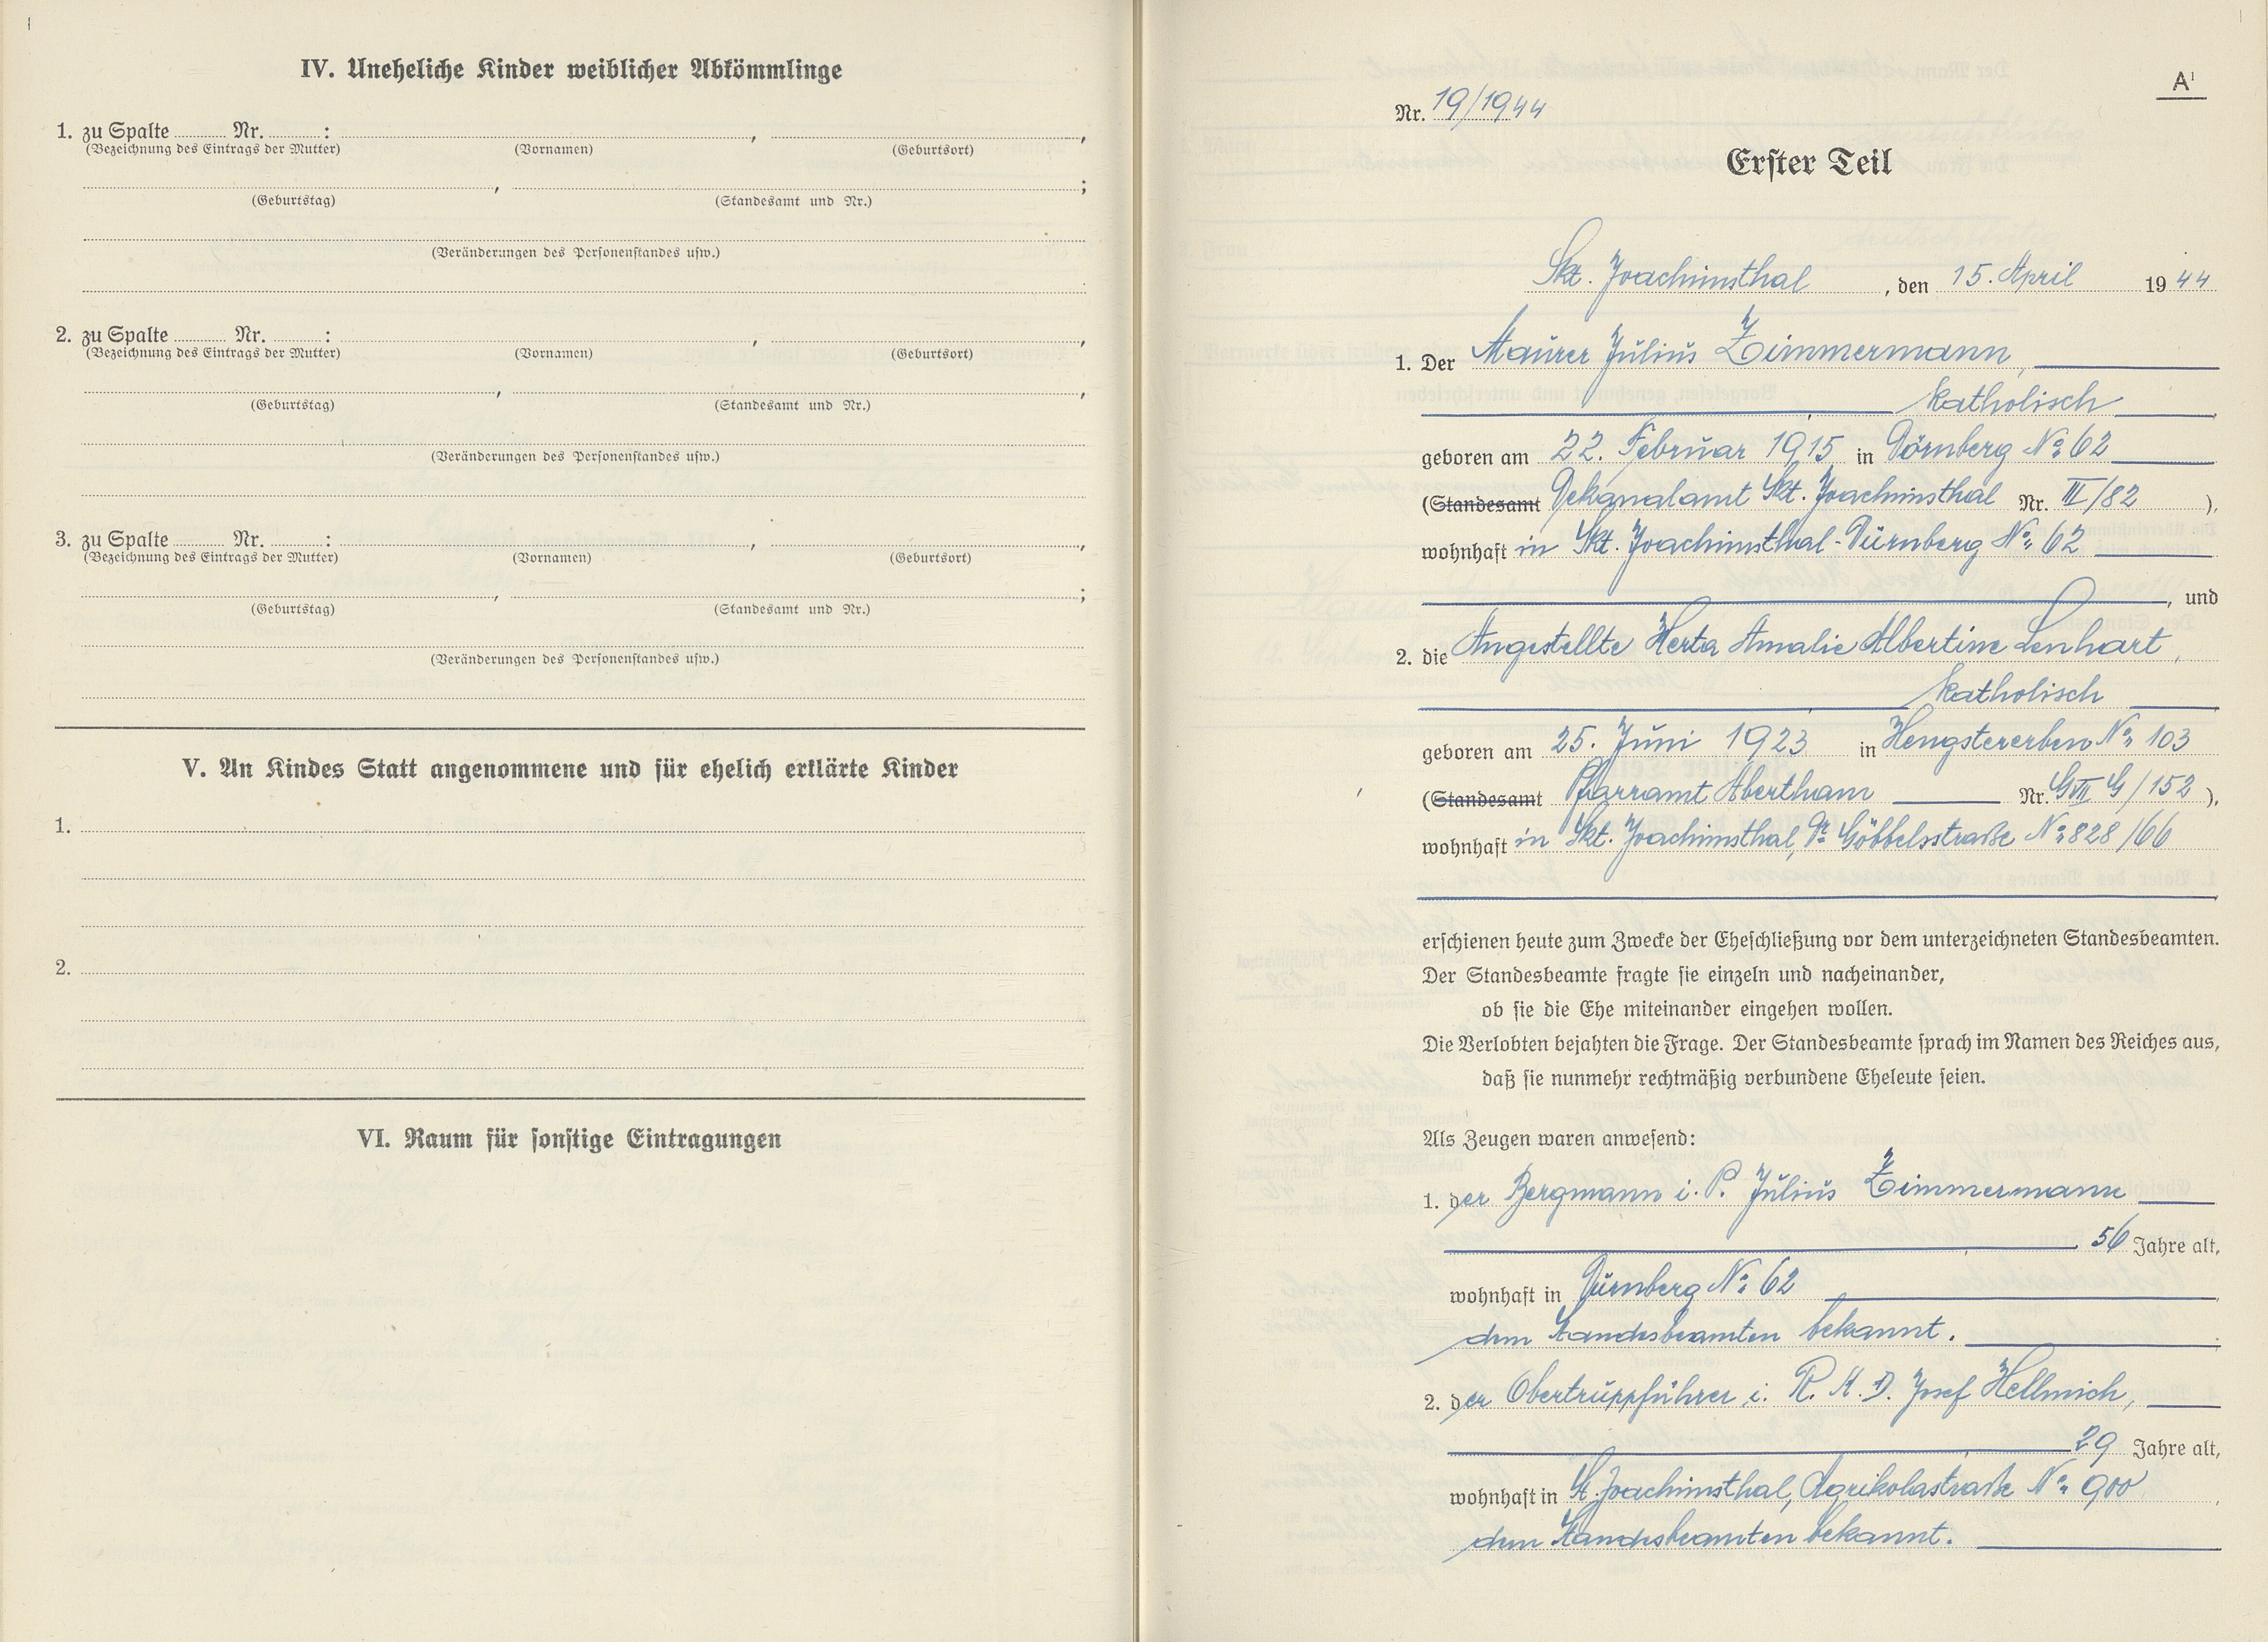 IV. Uneheliche Kinder weiblicher Abkömmlinge
1. zu Spalte ........ Nr. ........ : ........ , ........ ,
(Bezeichnung des Eintrags der Mutter) (Vornamen) (Geburtsort)
........ , ........ ;
(Geburtstag) (Standesamt und Nr.)
(Veränderungen des Personenstandes usw.)
2. zu Spalte ........ Nr. ........ : ........ , ........ ,
(Bezeichnung des Eintrags der Mutter) (Vornamen) (Geburtsort)
........ , ........ ,
(Geburtstag) (Standesamt und Nr.)
(Veränderungen des Personenstandes usw.)
3. zu Spalte ........ Nr. ........ : ........ , ........ ,
(Bezeichnung des Eintrags der Mutter) (Vornamen) (Geburtsort)
........ , ........ ;
(Geburtstag) (Standesamt und Nr.)
(Veränderungen des Personenstandes usw.)
V. An Kindes Statt angenommene und für ehelich erklärte Kinder
1.
2.
VI. Raum für sonstige Eintragungen
A¹
Nr. 19/1944
Erster Teil
Skt. Joachimsthal , den 15. April 1944
1. Der Maurer Julius Zimmermann,
katholisch ,
geboren am 22. Februar 1915 in Dörnberg No 62
(Standesamt Dekanalamt Skt. Joachimsthal Nr. III/82 ),
wohnhaft in Skt. Joachimsthal-Dürnberg No 62
, und
2. die Angestellte Herta Amalie Albertine Lenhart,
katholisch
geboren am 25. Juni 1923 in Hengstererben No 103
(Standesamt Pfarramt Abertham Nr. G VII G/152 ),
wohnhaft in Skt. Joachimsthal, Dr. Göbbelsstraße No 828/66
erschienen heute zum Zwecke der Eheschließung vor dem unterzeichneten Standesbeamten.
Der Standesbeamte fragte sie einzeln und nacheinander,
ob sie die Ehe miteinander eingehen wollen.
Die Verlobten bejahten die Frage. Der Standesbeamte sprach im Namen des Reiches aus,
daß sie nunmehr rechtmäßig verbundene Eheleute seien.
Als Zeugen waren anwesend:
1. der Bergmann i. P. Julius Zimmermann
56 Jahre alt,
wohnhaft in Dürnberg No 62 ,
dem Standesbeamten bekannt.
2. der Obertruppführer i. R. A. D. Josef Hellmich,
29 Jahre alt,
wohnhaft in St. Joachimsthal, Agrikolastraße No 900 ,
dem Standesbeamten bekannt.